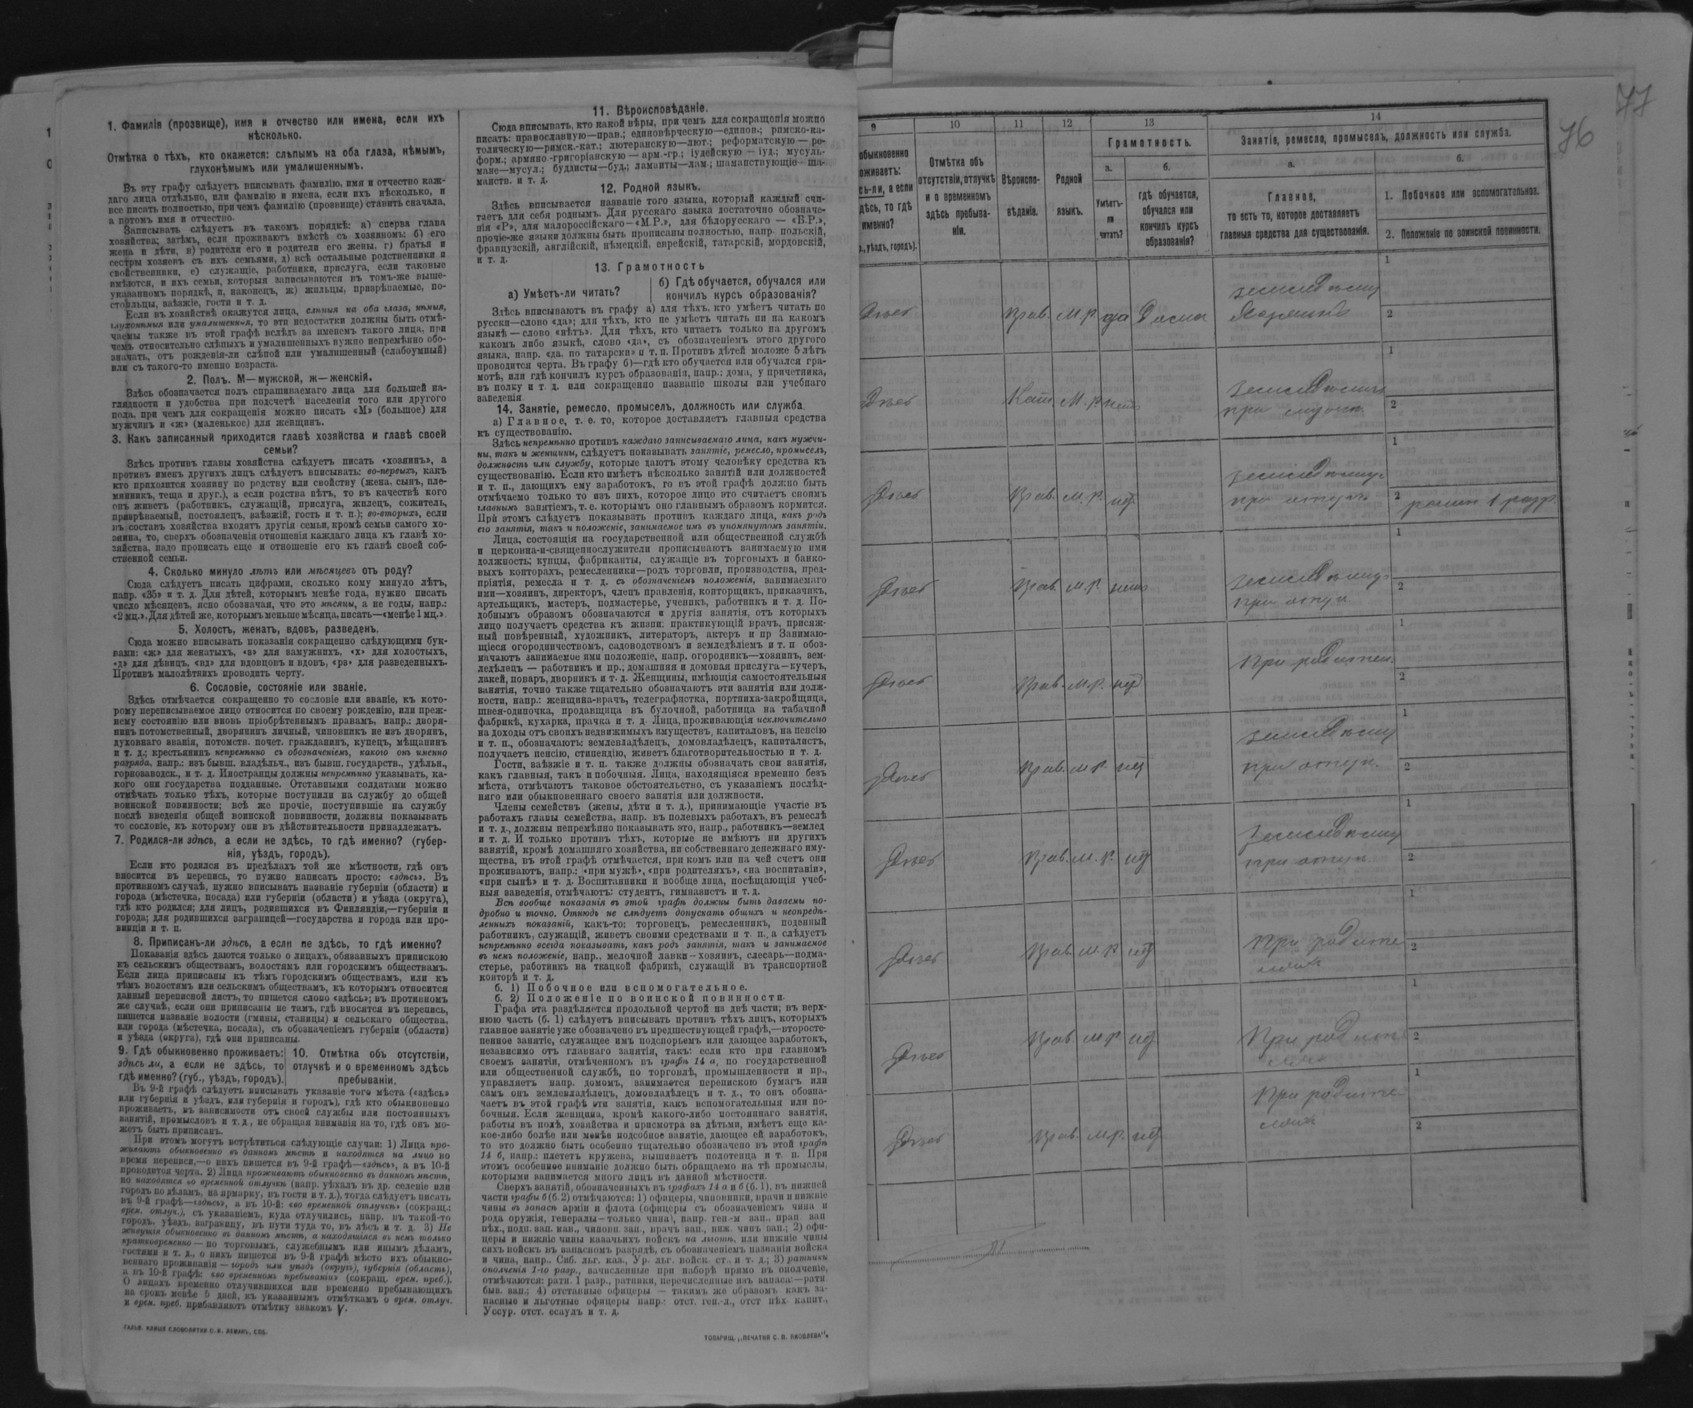 1. Фамилія (прозвище), имя и отчество или имена, если ихъ
нѣсколько.
Отмѣтка о тѣхъ, кто окажется: слѣпымъ на оба глаза, нѣмымъ,
глухонѣмымъ или умалишеннымъ.
Въ эту графу слѣдуетъ вписывать фамилію, имя и отчество каж-
даго лица отдѣльно, или фамилію и имена, если ихъ нѣсколько, и
все писать полностью, при чемъ фамилію (прозвище) ставить сначала,
а потомъ имя и отчество.
Записывать слѣдуетъ въ такомъ порядкѣ: а) сперва глава
хозяйства; затѣмъ, если проживаютъ вмѣстѣ съ хозяиномъ: б) его
жена и дѣти, в) родители его и родители его жены, г) братья и
сестры хозяевъ съ ихъ семьями, д) всѣ остальные родственники и
свойственники, е) служащіе, работники, прислуга, если таковые
имѣются, и ихъ семьи, которыя записываются въ томъ-же выше-
указанномъ порядкѣ, и, наконецъ, ж) жильцы, призрѣваемые, по-
стояльцы, заѣзжіе, гости и т. д.
Если въ хозяйствѣ окажутся лица, слѣпыя на оба глаза, нѣмыя,
глухонѣмыя или умалишенныя, то эти недостатки должны быть отмѣ-
чаемы также въ этой графѣ вслѣдъ за именемъ такого лица, при
чемъ относительно слѣпыхъ и умалишенныхъ нужно непремѣнно обо-
значать, отъ рожденія-ли слѣпой или умалишенный (слабоумный)
или съ такого-то именно возраста.
2. Полъ. М—мужской, ж—женскій.
Здѣсь обозначается полъ спрашиваемаго лица для большей на-
глядности и удобства при подсчетѣ населенія того или другого
пола, при чемъ для сокращенія можно писать «М» (большое) для
мужчинъ и «ж» (маленькое) для женщинъ.
3. Какъ записанный приходится главѣ хозяйства и главѣ своей
семьи?
Здѣсь противъ главы хозяйства слѣдуетъ писать «хозяинъ», а
противъ именъ другихъ лицъ слѣдуетъ вписывать: во-первыхъ, какъ
кто приходится хозяину по родству или свойству (жена, сынъ, пле-
мянникъ, теща и друг.), а если родства нѣтъ, то въ качествѣ кого
онъ живетъ (работникъ, служащій, прислуга, жилецъ, сожитель,
призрѣваемый, постоялецъ, заѣзжій, гость и т. п.); во-вторыхъ, если
въ составъ хозяйства входятъ другія семьи, кромѣ семьи самого хо-
зяина, то, сверхъ обозначенія отношенія каждаго лица къ главѣ хо-
зяйства, надо прописать еще и отношеніе его къ главѣ своей соб-
ственной семьи.
4. Сколько минуло лѣтъ или мѣсяцевъ отъ роду?
Сюда слѣдуетъ писать цифрами, сколько кому минуло лѣтъ,
напр. «35» и т. д. Для дѣтей, которымъ менѣе года, нужно писать
число мѣсяцевъ, ясно обозначая, что это мѣсяцы, а не годы, напр.:
«2 мц.». Для дѣтей же, которымъ меньше мѣсяца, писать—«менѣе 1 мц.»
5. Холостъ, женатъ, вдовъ, разведенъ.
Сюда можно вписывать показанія сокращенно слѣдующими бук-
вами: «ж» для женатыхъ, «з» для замужнихъ, «х» для холостыхъ,
«д» для дѣвицъ, «вд» для вдовцовъ и вдовъ, «рз» для разведенныхъ.
Противъ малолѣтнихъ проводить черту.
6. Сословіе, состояніе или званіе.
Здѣсь отмѣчается сокращенно то сословіе или званіе, къ кото-
рому переписываемое лицо относится по своему рожденію, или преж-
нему состоянію или вновь пріобрѣтеннымъ правамъ, напр.: дворя-
нинъ потомственный, дворянинъ личный, чиновникъ не изъ дворянъ,
духовнаго званія, потомств. почет. гражданинъ, купецъ, мѣщанинъ
и т. д.; крестьянинъ непремѣнно съ обозначеніемъ, какого онъ именно
разряда, напр.: изъ бывш. владѣльч., изъ бывш. государств., удѣльн.,
горнозаводск., и т. д. Иностранцы должны непремѣнно указывать, ка-
кого они государства подданные. Отставными солдатами можно
отмѣчать только тѣхъ, которые поступили на службу до общей
воинской повинности; всѣ же прочіе, поступившіе на службу
послѣ введенія общей воинской повинности, должны показывать
то сословіе, къ которому они въ дѣйствительности принадлежатъ.
7. Родился-ли здѣсь, а если не здѣсь, то гдѣ именно? (губер-
нія, уѣздъ, городъ).
Если кто родился въ предѣлахъ той же мѣстности, гдѣ онъ
вносится въ перепись, то нужно написать просто: «здѣсь». Въ
противномъ случаѣ, нужно вписывать названіе губерніи (области) и
города (мѣстечка, посада) или губерніи (области) и уѣзда (округа),
гдѣ кто родился; для лицъ, родившихся въ Финляндіи,—губернія и
города; для родившихся заграницей—государства и города или про-
винціи и т. п.
8. Приписанъ-ли здѣсь, а если не здѣсь, то гдѣ именно?
Показанія здѣсь даются только о лицахъ, обязанныхъ припискою
къ сельскимъ обществамъ, волостямъ или городскимъ обществамъ.
Если лица приписаны къ тѣмъ городскимъ обществамъ, или къ
тѣмъ волостямъ или сельскимъ обществамъ, къ которымъ относится
данный переписной листъ, то пишется слово «здѣсь»; въ противномъ
же случаѣ, если они приписаны не тамъ, гдѣ вносятся въ перепись,
пишется названіе волости (гмины, станицы) и сельскаго общества,
или города (мѣстечка, посада), съ обозначеніемъ губерніи (области)
и уѣзда (округа), гдѣ они приписаны.
9. Гдѣ обыкновенно проживаетъ:
здѣсь ли, а если не здѣсь, то
гдѣ именно? (губ., уѣздъ, городъ).
10. Отмѣтка объ отсутствіи,
отлучкѣ и о временномъ здѣсь
пребываніи.
Въ 9-й графѣ слѣдуетъ вписывать указаніе того мѣста («здѣсь»
или губернія и уѣздъ, или губернія и городъ), гдѣ кто обыкновенно
проживаетъ, въ зависимости отъ своей службы или постоянныхъ
занятій, промысловъ и т. д., не обращая вниманія на то, гдѣ онъ мо-
жетъ быть приписанъ.
При этомъ могутъ встрѣтиться слѣдующіе случаи: 1) Лица про-
живаютъ обыкновенно въ данномъ мѣстѣ и находятся на лицо во
время переписи,—о нихъ пишется въ 9-й графѣ—«здѣсь», а въ 10-й
проводится черта. 2) Лица проживаютъ обыкновенно въ данномъ мѣстѣ,
но находятся во временной отлучкѣ (напр. уѣхалъ въ др. селеніе или
городъ по дѣламъ, на ярмарку, въ гости и т. д.), тогда слѣдуетъ писать
въ 9-й графѣ—«здѣсь», а въ 10-й: «во временной отлучкѣ» (сокращ.:
врем. отлуч.), съ указаніемъ, куда отлучились, напр. въ такой-то
городъ, уѣздъ, заграницу, въ пути туда то, въ лѣсъ и т. д. 3) Не
живущія обыкновенно въ данномъ мѣстѣ, а находящіяся въ немъ только
кратковременно — по торговымъ, служебнымъ или инымъ дѣламъ,
гостями и т. д., о нихъ пишется въ 9-й графѣ мѣсто ихъ обыкно-
веннаго проживанія — городъ или уѣздъ (округъ), губернія (область),
а въ 10-й графѣ: «во временномъ пребываніи» (сокращ. врем. преб.).
О лицахъ временно отлучившихся или временно пребывающихъ
на срокъ менѣе 5 дней, къ указаннымъ отмѣткамъ о врем. отлуч.
и врем. преб. прибавляютъ отмѣтку знакомъ V.
ТОВАРИЩ. „ПЕЧАТНЯ С. П. ЯКОВЛЕВА“
11. Вѣроисповѣданіе.
Сюда вписывать, кто какой вѣры, при чемъ для сокращенія можно
писать: православную—прав.; единовѣрческую—единов.; римско-ка-
толическую—римск.-кат.; лютеранскую—лют.; реформатскую — ре-
форм.; армяно-григоріанскую — арм.-гр.; іудейскую — іуд.; мусуль-
мане—мусул.; буддисты—буд.; ламаиты—лам.; шаманствующіе—ша-
манств. и т. д.
12. Родной языкъ.
Здѣсь вписывается названіе того языка, который каждый счи-
таетъ для себя роднымъ. Для русскаго языка достаточно обозначе-
нія «Р», для малороссійскаго—«М.Р.», для бѣлорусскаго — «Б.Р.»,
прочіе-же языки должны быть прописаны полностью, напр. польскій,
французскій, англійскій, нѣмецкій, еврейскій, татарскій, мордовскій,
и т. д.
13. Грамотность
а) Умѣетъ-ли читать?
б) Гдѣ обучается, обучался или
кончилъ курсъ образованія?
Здѣсь вписываютъ въ графу а) для тѣхъ, кто умѣетъ читать по
русски—слово «да»; для тѣхъ, кто не умѣетъ читать ни на какомъ
языкѣ — слово «нѣтъ». Для тѣхъ, кто читаетъ только на другомъ
какомъ либо языкѣ, слово «да», съ обозначеніемъ этого другого
языка, напр. «да, по татарски» и т. п. Противъ дѣтей моложе 5 лѣтъ
проводится черта. Въ графу б)—гдѣ кто обучается или обучался гра-
мотѣ, или гдѣ кончилъ курсъ образованія, напр.: дома, у причетника,
въ полку и т. д. или сокращенно названіе школы или учебнаго
заведенія.
14. Занятіе, ремесло, промыселъ, должность или служба
а) Главное, т. е. то, которое доставляетъ главныя средства
къ существованію.
Здѣсь непремѣнно противъ каждаго записываемаго лица, какъ мужчи-
ны, такъ и женщины, слѣдуетъ показывать занятіе, ремесло, промыселъ,
должность или службу, которые даютъ этому человѣку средства къ
существованію. Если кто имѣетъ нѣсколько занятій или должностей
и т. п., дающихъ ему заработокъ, то въ этой графѣ должно быть
отмѣчаемо только то изъ нихъ, которое лицо это считаетъ своимъ
главнымъ занятіемъ, т. е. которымъ оно главнымъ образомъ кормится.
При этомъ слѣдуетъ показывать противъ каждаго лица, какъ родъ
его занятія, такъ и положеніе, занимаемое имъ въ упомянутомъ занятіи.
Лица, состоящія на государственной или общественной службѣ
и церковно-и-священнослужители прописываютъ занимаемую ими
должность; купцы, фабриканты, служащіе въ торговыхъ и банко-
выхъ конторахъ, ремесленники—родъ торговли, производства, пред-
пріятія, ремесла и т. д. съ обозначеніемъ положенія, занимаемаго
ими—хозяинъ, директоръ, членъ правленія, конторщикъ, приказчикъ,
артельщикъ, мастеръ, подмастерье, ученикъ, работникъ и т. д. По-
добнымъ образомъ обозначаются и другія занятія, отъ которыхъ
лицо получаетъ средства къ жизни: практикующій врачъ, присяж-
ный повѣренный, художникъ, литераторъ, актеръ и пр Занимаю-
щіеся огородничествомъ, садоводствомъ и земледѣліемъ и т. п обоз-
начаютъ занимаемое ими положеніе, напр. огородникъ—хозяинъ, зем-
ледѣлецъ — работникъ и пр.; домашняя и домовая прислуга—кучеръ,
лакей, поваръ, дворникъ и т. д. Женщины, имѣющія самостоятельныя
занятія, точно также тщательно обозначаютъ эти занятія или долж-
ности, напр.: женщина-врачъ, телеграфистка, портниха-закройщица,
швея-одиночка, продавщица въ булочной, работница на табачной
фабрикѣ, кухарка, прачка и т. д Лица, проживающія исключительно
на доходы отъ своихъ недвижимыхъ имуществъ, капиталовъ, на пенсію
и т. п., обозначаютъ: землевладѣлецъ, домовладѣлецъ, капиталистъ,
получаетъ пенсію, стипендію, живетъ благотворительностью и т. д.
Гости, заѣзжіе и т. п. также должны обозначать свои занятія,
какъ главныя, такъ и побочныя. Лица, находящіяся временно безъ
мѣста, отмѣчаютъ таковое обстоятельство, съ указаніемъ послѣд-
няго или обыкновеннаго своего занятія или должности.
Члены семействъ (жены, дѣти и т. д.), принимающіе участіе въ
работахъ главы семейства, напр. въ полевыхъ работахъ, въ ремеслѣ
и т. д., должны непремѣнно показывать это, напр., работникъ—землед
и т. д. И только противъ тѣхъ, которые не имѣютъ ни другихъ
занятій, кромѣ домашняго хозяйства, ни собственнаго денежнаго иму-
щества, въ этой графѣ отмѣчается, при комъ или на чей счетъ они
проживаютъ, напр.: «при мужѣ», «при родителяхъ», «на воспитаніи»,
«при сынѣ» и т. д. Воспитанники и вообще лица, посѣщающія учеб-
ныя заведенія, отмѣчаютъ: студентъ, гимназистъ и т. д.
Всѣ вообще показанія въ этой графѣ должны быть даваемы по-
дробно и точно. Отнюдь не слѣдуетъ допускать общихъ и неопредѣ-
ленныхъ показаній, какъ-то: торговецъ, ремесленникъ, поденный
работникъ, служащій, живетъ своими средствами и т. п., а слѣдуетъ
непремѣнно всегда показывать, какъ родъ занятія, такъ и занимаемое
въ немъ положеніе, напр., мелочной лавки—хозяинъ, слесарь—подма-
стерье, работникъ на ткацкой фабрикѣ, служащій въ транспортной
конторѣ и т. д.
б. 1) Побочное или вспомогательное.
б. 2) Положеніе по воинской повинности.
Графа эта раздѣляется продольной чертой на двѣ части; въ верх-
нюю часть (б. 1) слѣдуетъ вписывать противъ тѣхъ лицъ, которыхъ
главное занятіе уже обозначено въ предшествующей графѣ,—второсте-
пенное занятіе, служащее имъ подспорьемъ или дающее заработокъ,
независимо отъ главнаго занятія, такъ: если кто при главномъ
своемъ занятіи, отмѣченномъ въ графѣ 14 а, по государственной
или общественной службѣ, по торговлѣ, промышленности и пр.,
управляетъ напр. домомъ, занимается перепискою бумагъ или
самъ онъ землевладѣлецъ, домовладѣлецъ и т. д., то онъ обозна-
чаетъ въ этой графѣ эти занятія, какъ вспомогательныя или по-
бочныя. Если женщина, кромѣ какого-либо постояннаго занятія,
работы въ полѣ, хозяйства и присмотра за дѣтьми, имѣетъ еще ка-
кое-либо болѣе или менѣе подсобное занятіе, дающее ей заработокъ,
то это должно быть особенно тщательно обозначено въ этой графѣ
14 б, напр.: плететъ кружева, вышиваетъ полотенца и т. п. При
этомъ особенное вниманіе должно быть обращаемо на тѣ промыслы,
которыми занимается много лицъ въ данной мѣстности.
Сверхъ занятій, обозначенныхъ въ графахъ 14 а и б (б. 1), въ нижней
части графы б (б. 2) отмѣчаются: 1) офицеры, чиновники, врачи и нижніе
чины въ запасѣ арміи и флота (офицеры съ обозначеніемъ чина и
рода оружія, генералы—только чина), напр. ген-м зап., прап. зап.
пѣх., подп. зап. кав., чиновн зап., врачъ зап., ниж. чинъ зап.; 2) офи-
церы и нижніе чины казачьихъ войскъ на льготѣ, или нижніе чины
сихъ войскъ въ запасномъ разрядѣ, съ обозначеніемъ названія войска
и чина, напр. Сиб. льг. каз., Ур. льг. войск. ст. и т. д.; 3) ратники
ополченія 1-го разр., зачисленные при наборѣ прямо въ ополченіе,
отмѣчаются: ратн. 1 разр., ратники, перечисленные изъ запаса:—ратн.
быв. зап.; 4) отставные офицеры — такимъ же образомъ какъ за-
пасные и льготные офицеры напр.: отст. ген.-л., отст пѣх капит.,
Уссур. отст. есаулъ и т. д.
77
76
9 10 11 12 13 14
Грамотность.
Занятіе, ремесло, промыселъ, должность или служба.
а. б. а. б.
Отмѣтка объ
отсутствіи, отлучкѣ
и о временномъ
здѣсь пребыва-
ніи.
Вѣроиспо-
вѣданіе.
Родной
языкъ.
Умѣетъ-
ли
читать?
гдѣ обучается,
обучался или
кончилъ курсъ
образованія?
Главное,
то есть то, которое доставляетъ
главныя средства для существованія.
1. Побочное или вспомогательное.
2. Положеніе по воинской повинности.
1
Здѣсь Прав. М.Р. да
2
1
Здѣсь М.Р.
2
1
Здѣсь Прав. М.Р.
2
1
Здѣсь Прав. М.Р.
2
1
Здѣсь Прав. М.Р.
2
1
Здѣсь Прав. М.Р.
2
1
Здѣсь Прав. М.Р.
2
1
Здѣсь Прав. М.Р. При родите
2
1
Здѣсь Прав. М.Р.
2
1
Здѣсь Прав. М.Р. При родите
2